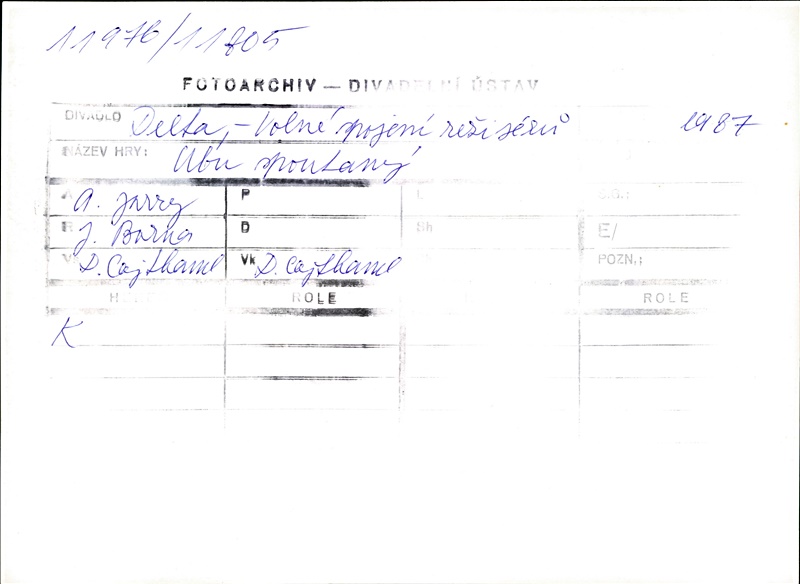 11976/11805
FOTOARCHIV — DIVADELNÍ ÚSTAV
DIVADLO Delta, – Volné spojení režisérů 1987
NÁZEV HRY: Ubu spoutaný
A A. Jarry P Č.G.:
R J. Borna D Sh E/
Vk D. Cajthaml Vk D. Cajthaml POZN.:
ROLE ROLE
K